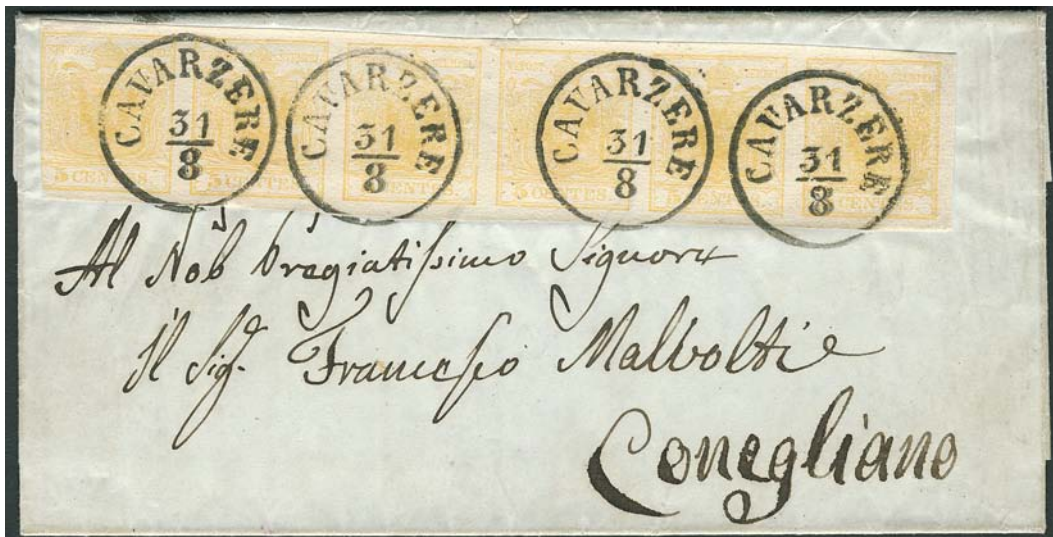 CAVARZERE CAVARZERE CAVARZERE CAVARZERE
31/8 31/8 31/8 31/8
5 CENTES. 5 CENTES. CENTES. 5 CENTES. 5 CENTES. CENTES.
Al Nob Pregiatissimo Signore
Il Sig.r Francesco Malvolti
Conegliano